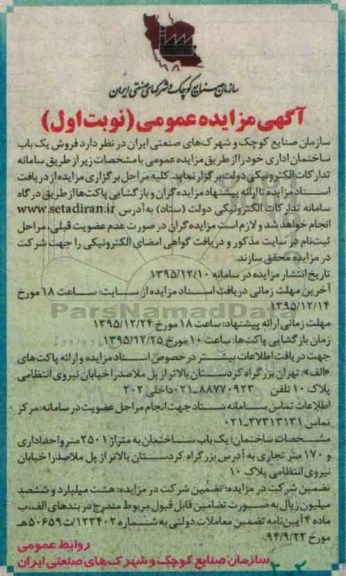 سازمان صنایع کوچک و شهرکهای صنعتی ایران
آگهی مزایده عمومی (نوبت اول)
سازمان صنایع کوچک و شهرک‌های صنعتی ایران در نظر دارد فروش یک باب
ساختمان اداری خود را از طریق مزایده عمومی با مشخصات زیر از طریق سامانه
تدارکات الکترونیکی دولت برگزار نماید. کلیه مراحل برگزاری مزایده از دریافت
اسناد مزایده تا ارائه پیشنهاد مزایده‌گران و بازگشایی پاکت‌ها از طریق درگاه
سامانه تدارکات الکترونیکی دولت (ستاد) به آدرس www.setadiran.ir
انجام خواهد شد و لازم است مزایده گران در صورت عدم عضویت قبلی، مراحل
ثبت‌نام در سایت مذکور و دریافت گواهی امضای الکترونیکی را جهت شرکت
در مزایده محقق سازند.
تاریخ انتشار مزایده در سامانه ۱۳۹۵/۱۲/۱۰
آخرین مهلت زمانی دریافت اسناد مزایده از سایت: ساعت ۱۸ مورخ
۱۳۹۵/۱۲/۱۴
ParsNamadData
مهلت زمانی ارائه پیشنهاد: ساعت ۱۸ مورخ ۱۳۹۵/۱۲/۲۴
زمان بازگشایی پاکت‌ها: ساعت ۱۰ مورخ ۱۳۹۵/۱۲/۲۵
جهت دریافت اطلاعات بیشتر در خصوص اسناد مزایده و ارائه پاکت‌های
«الف»: تهران بزرگراه کردستان بالاتر از پل ملاصدرا خیابان نیروی انتظامی
پلاک ۱۰ تلفن ۸۸۷۷۰۹۲۳-۰۲۱ داخلی ۲۰۲
اطلاعات تماس سامانه ستاد جهت انجام مراحل عضویت در سامانه: مرکز
تماس ۲۷۳۱۳۱۳۱-۰۲۱
مشخصات ساختمان: یک باب ساختمان به متراژ ۲۵۰۱ متر واحد اداری
و ۱۷۰ متر تجاری به آدرس بزرگراه کردستان بالاتر از پل ملاصدرا خیابان
نیروی انتظامی پلاک ۱۰
تضمین شرکت در مزایده: تضمین شرکت در مزایده: هشت میلیارد و ششصد
میلیون ریال به صورت تضامین قابل قبول مربوط مندرج در بندهای الف، ب
ماده ۴ آیین‌نامه تضمین معاملات دولتی به شماره ۱۲۳۴۰۲/ت۵۰۶۵۹هـ
مورخ ۹۴/۹/۲۲.
روابط عمومی
سازمان صنایع کوچک و شهرک‌های صنعتی ایران